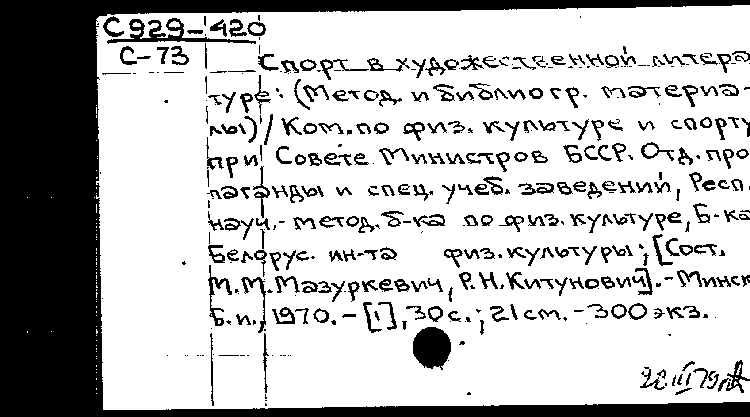 С929-420
С-73
Спорт в художественной литера-
туре: (Метод. и библиогр. материа-
лы) / Ком. по физ. культуре и спорту
при Совете Министров БССР. Отд. про-
паганды и спец. учеб. заведений, Респ.
науч.-метод. б-ка по физ. культуре, Б-ка
Белорус. ин-та физ. культуры; [Сост.
М.М. Мазуркевич, Р.Н. Китунович]. - Минск
Б.и., 1970. - [1], 30 с.; 21 см. - 300 экз.